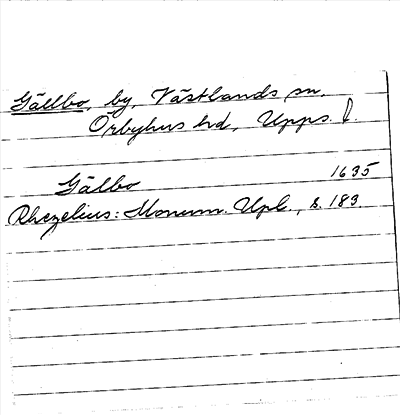 Gällbo, by, Västlands sn.
Örbyhus hd, Upps. l.
Gälbo 1635
Rhezelius: Monum. Upl., s. 183.